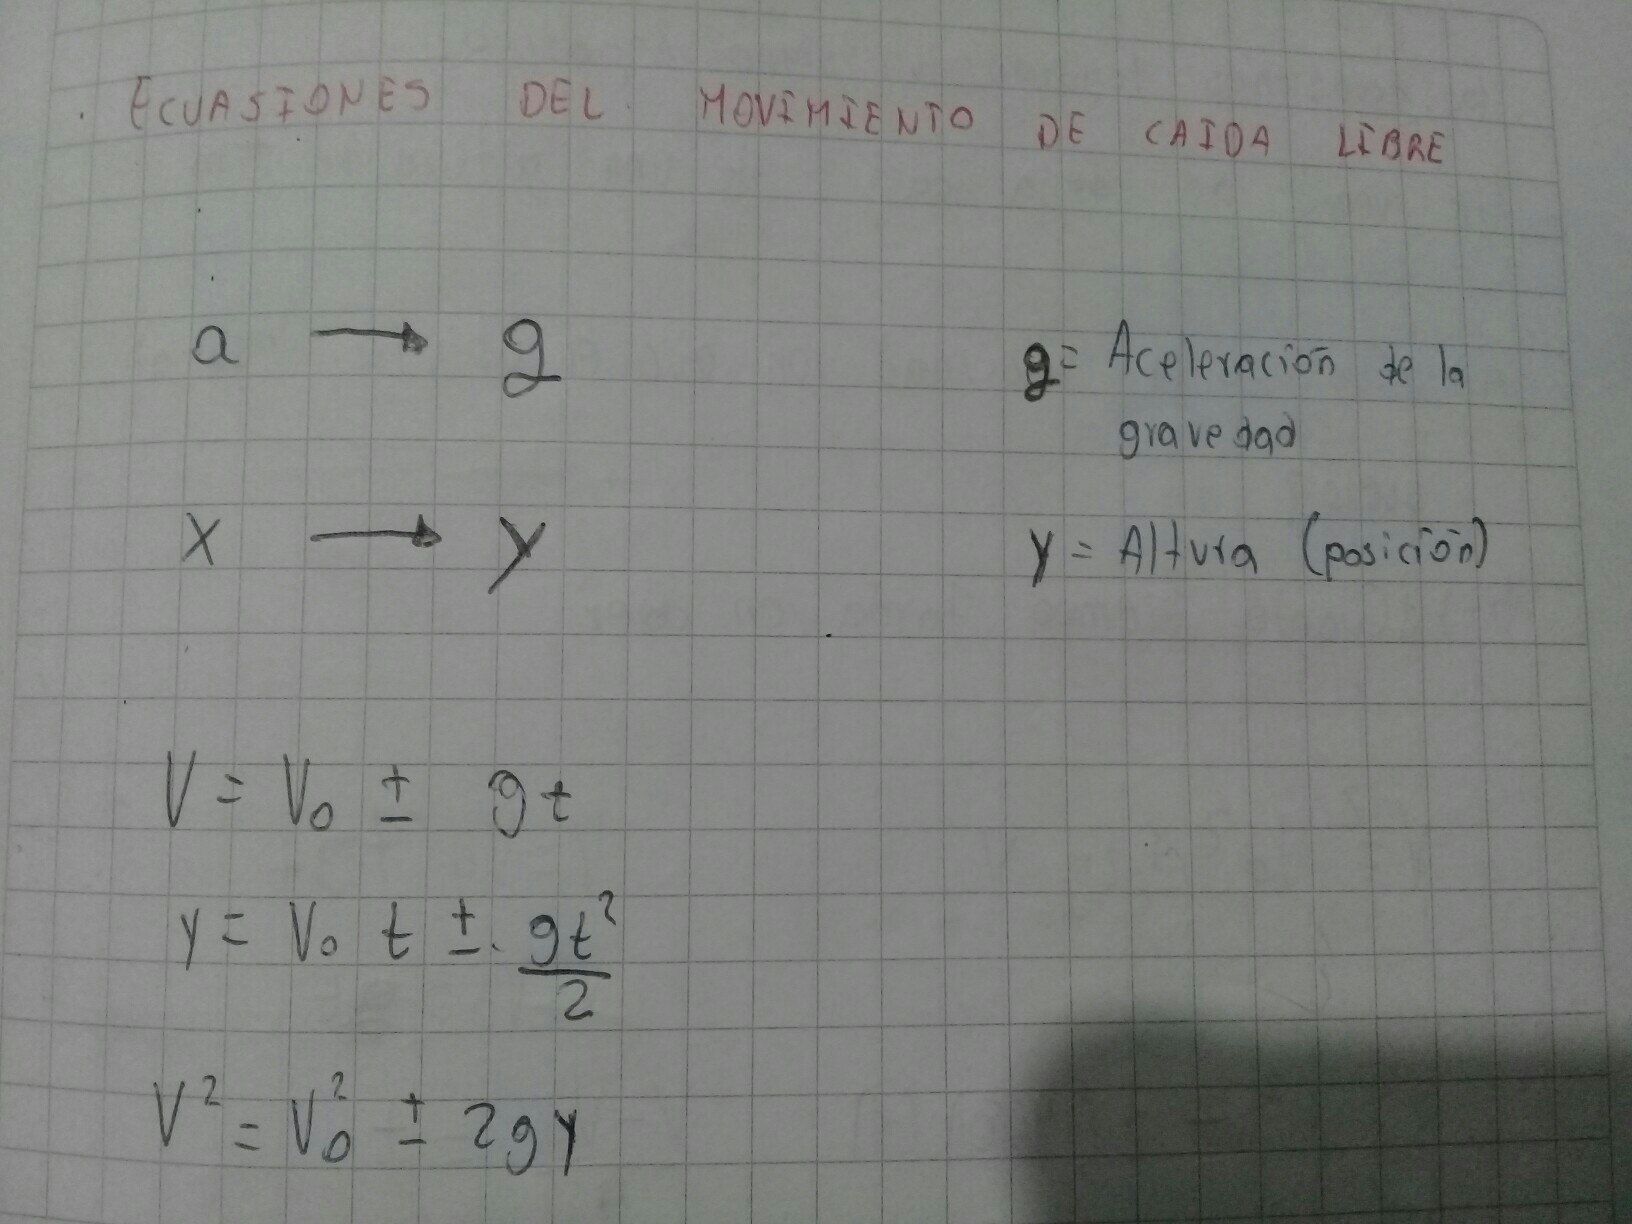 . ECUASIONES DEL MOVIMIENTO DE CAIDA LIBRE
a → g
g = Aceleración de la
gravedad
x → y
y = Altura (posición)
V = V₀ ± gt
y = V₀ t ± gt²/2
V² = V₀² ± 2gy